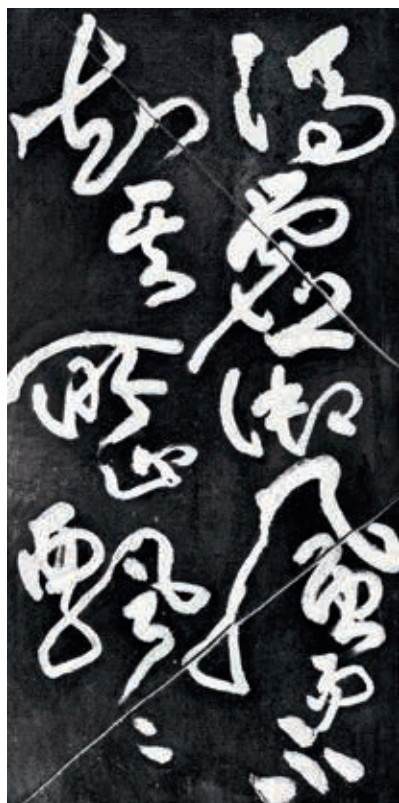 馮虛御風而不
知其所止飄〻